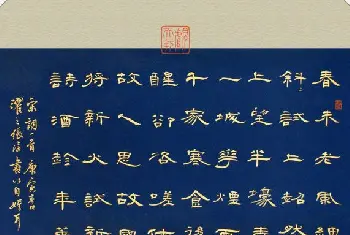 春未老風細
斜斜試上超然
上望半壕春
一城花煙雨
千家寒食後
醒卻咨嗟休
故人思故國
將新火試新
詩酒趁年華
宋詞一首庚寅春